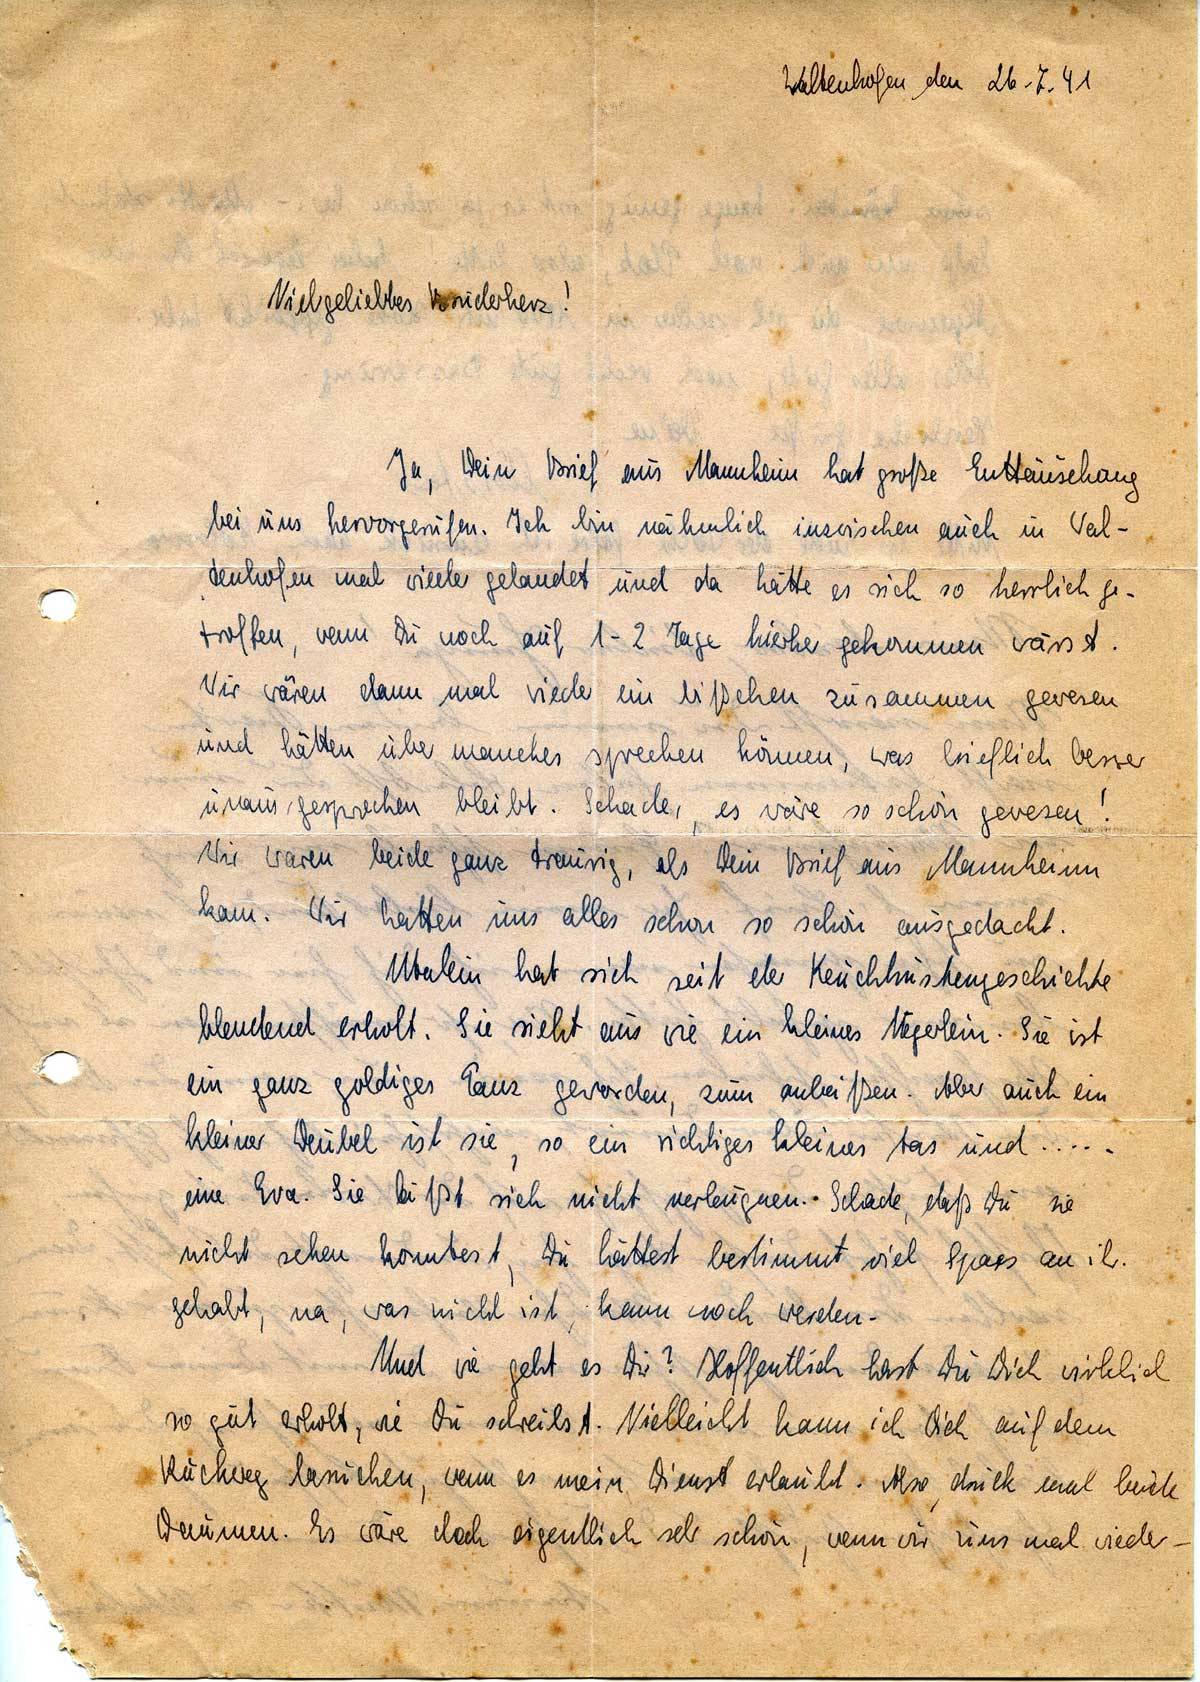 Waltenhofen den 26.7.41
Vielgeliebtes Bruderherz!
Ja, Dein Brief aus Mannheim hat große Enttäuschung
bei uns hervorgerufen. Ich bin nähmlich inzwischen auch in Wal-
tenhofen mal wieder gelandet und da hätte es sich so herrlich ge-
troffen, wenn Du noch auf 1-2 Tage hierher gekommen wärst.
Wir wären dann mal wieder ein bißchen zusammen gewesen
und hätten über manches sprechen können, was brieflich besser
unausgesprochen bleibt. Schade, es wäre so schön gewesen!
Wir waren beide ganz traurig, als Dein Brief aus Mannheim
kam. Wir hatten uns alles schon so schön ausgedacht.
Utalein hat sich seit der Keuchhustengeschichte
blendend erholt. Sie sieht aus wie ein kleines Negerlein. Sie ist
ein ganz goldiges geworden, zum anbeißen. Aber auch ein
kleiner Deubel ist sie, so ein richtiges kleines und .....
eine Eva. Sie läßt sich nicht verleugnen. Schade, daß Du sie
nicht sehen konntest, Du hättest bestimmt viel Spass an ihr
gehabt, na, was nicht ist, kann noch werden-
Und wie geht es Dir? Hoffentlich hast Du Dich wirklich
so gut erholt, wie Du schreibst. Vielleicht kann ich Dich auf dem
Rückweg besuchen, wenn es mein Dienst erlaubt. Also, drück mal beide
Daumen. Es wäre doch eigentlich sehr schön, wenn wir uns mal wieder-